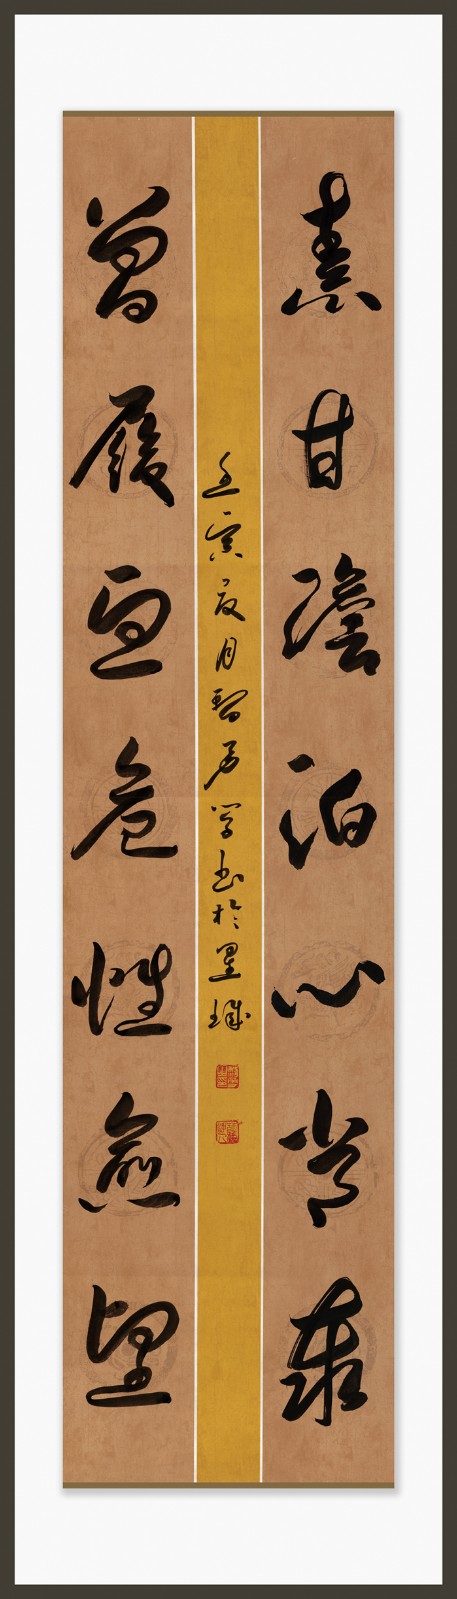 素甘澹泊心常泰
曾履忧危性愈坚
壬寅夏月智勇学书於墨城